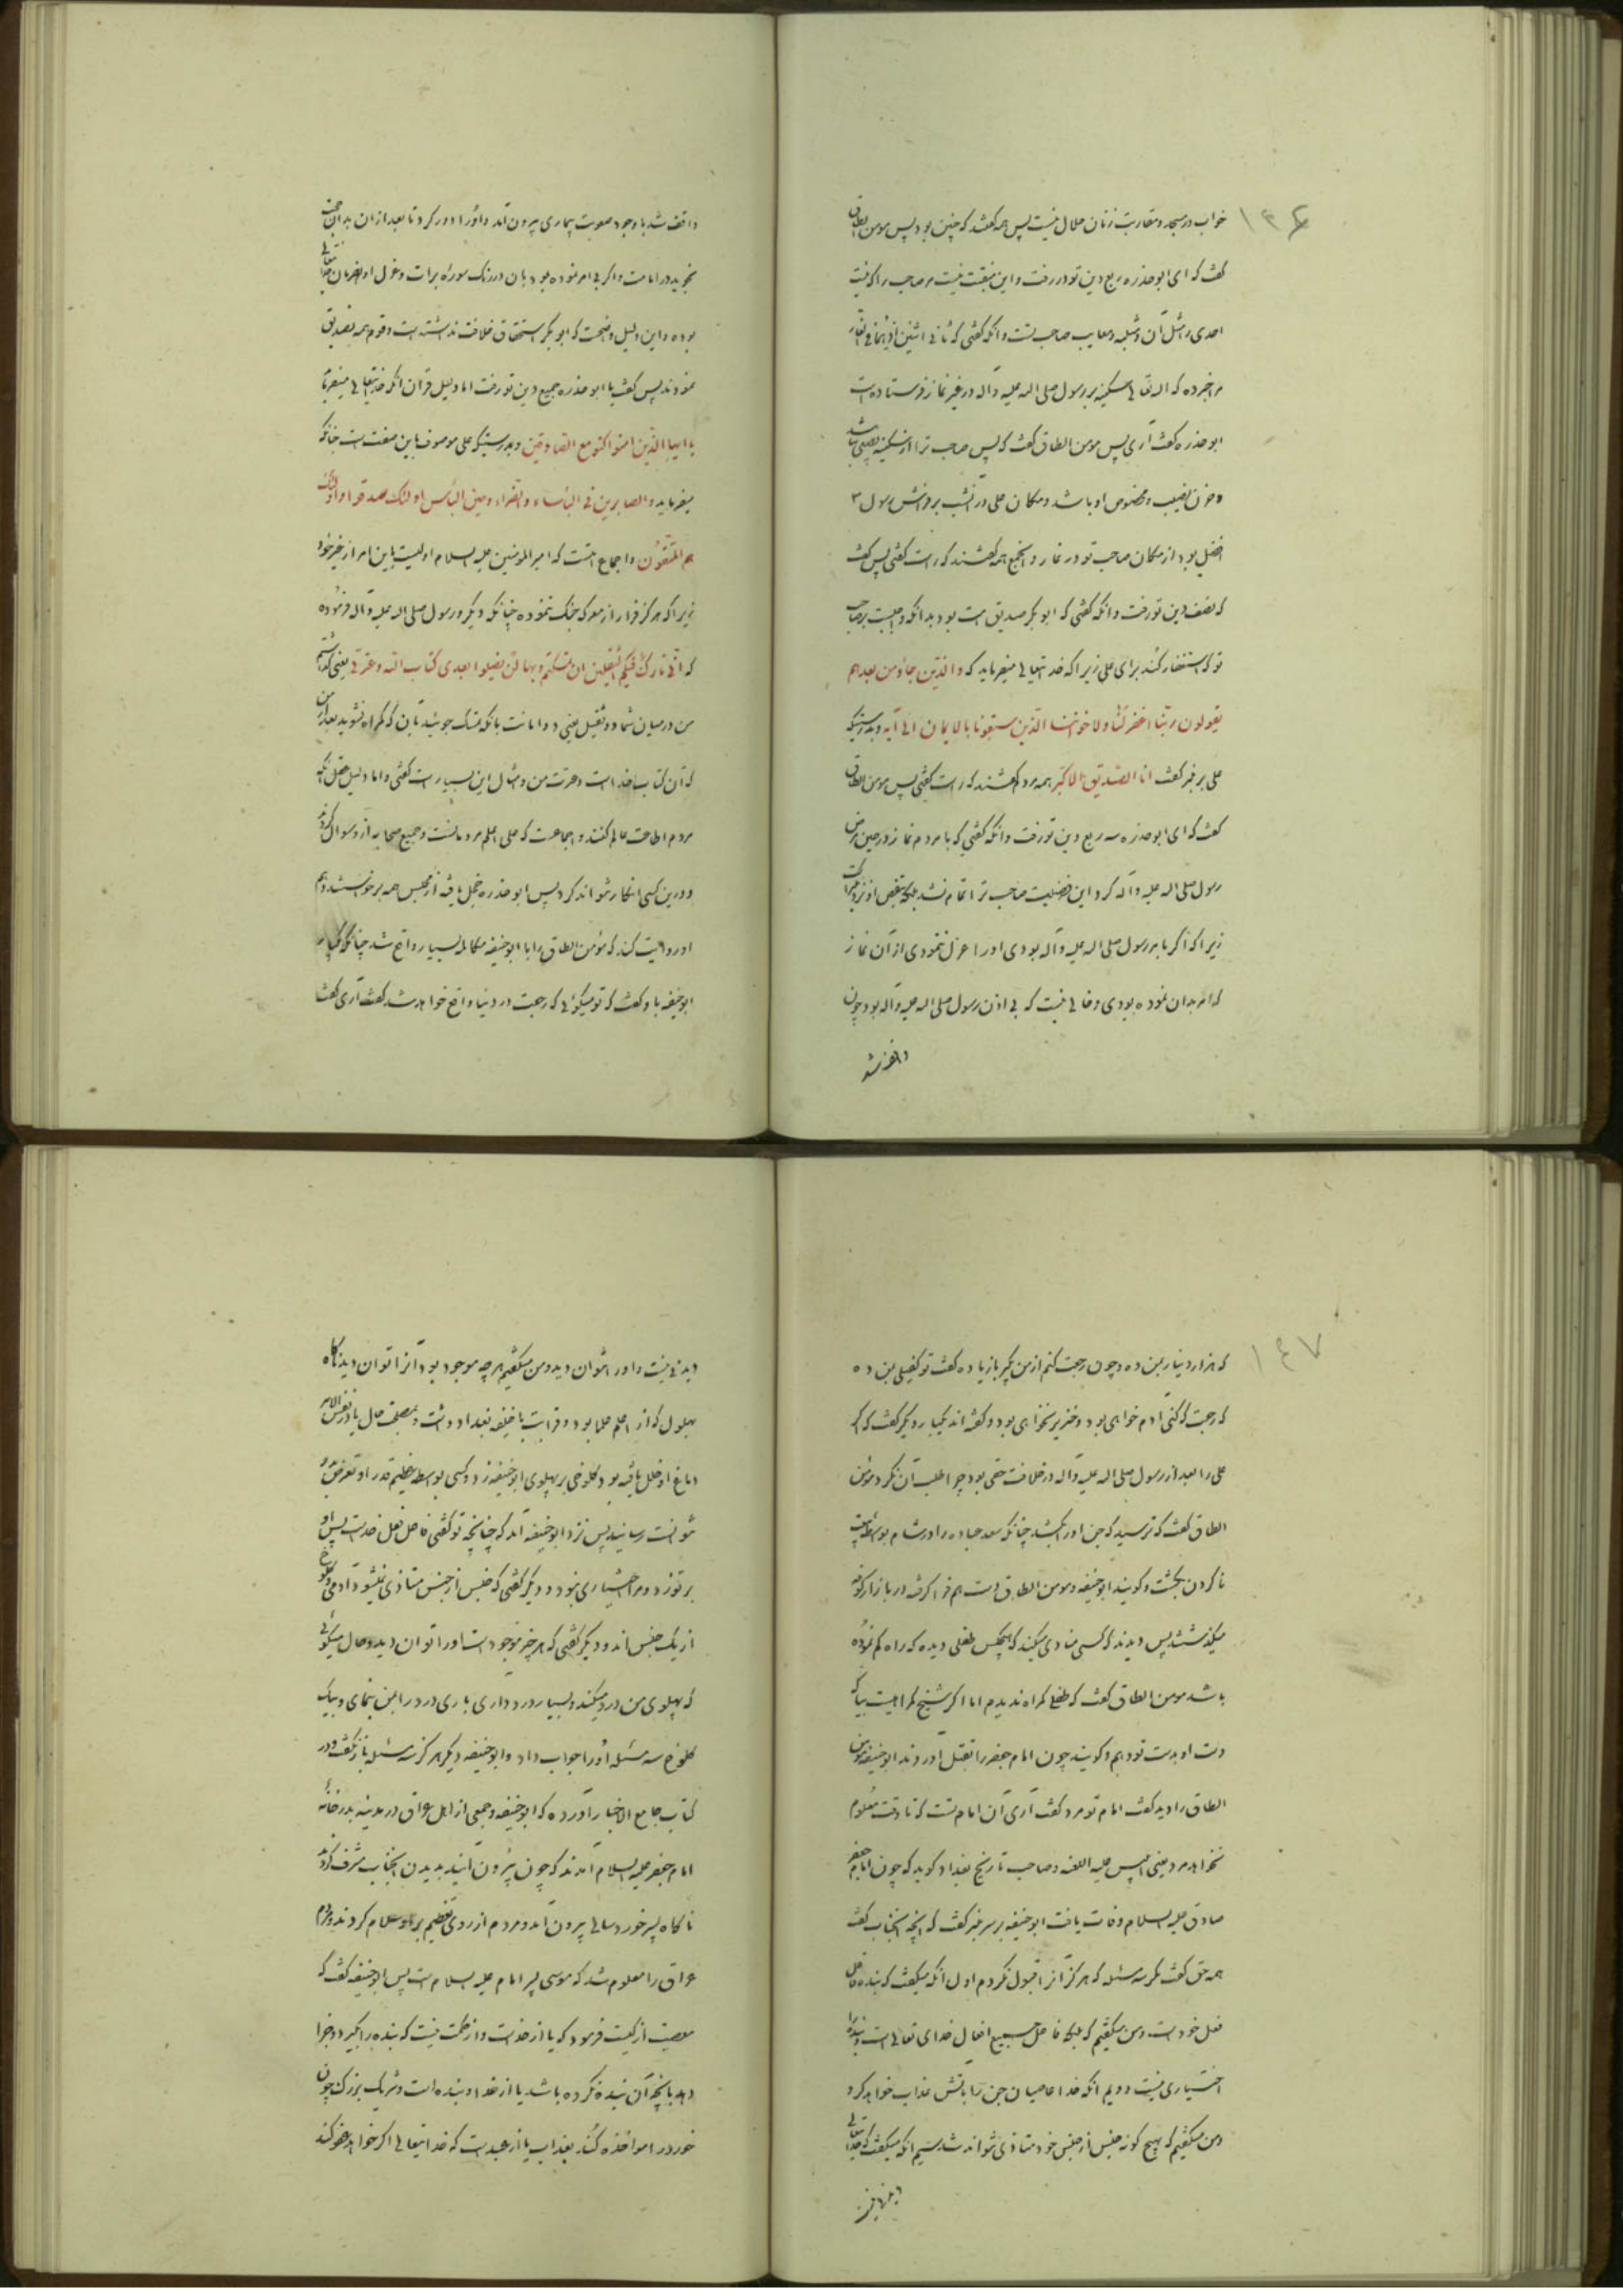 ۱۴۶
خواب در مسجد و مقاربت زنان حلال نیست پس همه گفتند که چنین بود پس مومن الطاق
گفت که ای ابو حذره ربع دین تو در رفت و این منقبت نیست مر صاحب را که نیست
احدی را مثل آن و مثلبه و معایب صاحب تست و انکه گفتی که ثانی اثنین اذ هما فی الغار
مرا خبر ده که الله تعالی سکینه بر رسول صلی الله علیه و آله در غیر نماز فرستاده است
ابو حذره گفت آری پس مومن الطاق گفت که پس صاحب ترا از سکینه نصیبی نباشد
و حزن نصیب و مخصوص او باشد و مکان علی در آن شب بر فرش رسول ص
افضل بود از مکان صاحب تو در غار و انجمع همه گفتند که راست گفتی پس گفت
که نصف دین تو رفت و انکه گفتی که ابو بکر صدیق است بود بدانکه واجبست بر صاحب
تو که استغفار کند برای علی زیرا که خدایتعالی میفرماید که والذین جاؤ من بعدهم
یقولون ربنا اغفر لنا ولاخواننا الذین سبقونا بالایمان الی آیه و بدرستیکه
علی بر منبر گفت انا الصدیق الاکبر همه مردم گفتند که راست گفتی پس مومن الطاق
گفت که ای ابو حذره سه ربع دین تو رفت و انکه گفتی که با مردم نماز در حین مرض
رسول صلی الله علیه و آله کرد این فضیلت صاحب ترا تمام نشد بلکه بنقص او نزدیکتر است
زیرا که اگر بامر رسول صلی الله علیه و آله بودی او را عزل ننمودی از آن نماز
که امر بدان نموده بودی و خالی نیست که بی اذن رسول صلی الله علیه و آله بود چون
واقف شد
واقف شد با وجود صعوبت بیماری بیرون آمد و او را دور کرد تا بعد از ان بدان حجت
نجوید در امامت و اگر بی امر نموده بود بان در رنک سوره برات و عزل او بفرمان خدایتعالی
بوده و این دلیل واضحست که ابو بکر استحقاق خلافت نداشته است و قوم همه تصدیق
نمودند پس گفت یا ابو حذره جمیع دین تو رفت اما دلیل قرآن انکه خدایتعالی میفرماید
یا ایها الذین امنوا کونوا مع الصادقین و بدرستیکه علی موصوف باین صفتست چنانکه
میفرماید والصابرین فی البأساء والضراء وحین البأس اولئک الذین صدقوا واولئک
هم المتقون و اجماع امتست که امیر المومنین علیه السلام اولیست باین امر از غیر خود
زیرا که هرگز فرار از معرکه جنک ننموده چنانکه دیگر و رسول صلی الله علیه و آله فرموده
که انی تارک فیکم الثقلین ان تمسکتم بهما لن تضلوا بعدی کتاب الله وعترتی یعنی گذاشتم
من در میان شما دو ثقل یعنی دو امانت بانکه تمسک جوئید بآن که گمراه نشوید بعد از من
که آن کتاب خداست و عترت من و مثال این بسیار است گفتی و اما دلیل عقل انکه
مردم اطاعت عالم کنند و اجماعست که علی اعلم مردمانست و جمیع صحابه از و سوال کردند
و درین کسی انکار نتواند کرد پس ابو حذره خجل یافته از مجلس همه برخواستند و هم
او روایت کند که مؤمن الطاق را با ابو حنیفه مکالمه بسیار واقع شد چنانکه یکبار
ابو حنیفه باو گفت که تو میگوئی که رجعت در دنیا واقع خواهد شد گفت آری گفت
۱۴۷
که هزار دینار بمن ده و چون رجعت کنم از من بگیر با زیاده گفت تو کفیلی بمن ده
که رجعت که کنی آدم خواهی بود و خنزیر نخواهی بود و گفته اند یکبار دیگر گفت که اگر
علی را بعد از رسول صلی الله علیه و آله در خلافت حقی بود چرا طلب آن نکرد مؤمن
الطاق گفت که ترسید که جن او را بکشد چنانکه سعد عباده را در شام بواسطه بیعت
نا کردن بکشت و گویند ابو حنیفه و مومن الطاق دست هم فرا گرفته در بازار کوفه
میگذشتند پس دیدند که کسی منادی میکند که هیچکس طفلی دیده که راه گم نموده
باشد مومن الطاق گفت که طفلی گمراه ندیدم اما اگر شیخ گمراهیست بیا که
دست او بدست تو دهم و گویند چون امام جعفر را بقتل آوردند ابو حنیفه مومن
الطاق را دید گفت امام تو مرد گفت آری آن امام تست که تا وقت معلوم
نخواهد مرد یعنی ابلیس علیه اللعنه و صاحب تاریخ بغداد گوید که چون امام جعفر
صادق علیه السلام وفات یافت ابو حنیفه بر سر منبر گفت که انچه آنجناب گفت
همه حق گفت مگر سه مسئله که هرگز آنرا قبول نکردم اول انکه میگفت که بنده فاعل
فعل خود است و من میگفتم که بلکه فاعل جمیع افعال خدای تعالی است و بنده را
اختیاری نیست دویم انکه خدا عاصیان جن را باتش عذاب خواهد کرد
و من میگفتم که هیچ گونه جنس از جنس خود متاذی نتواند شد سیم انکه میگفت که خدایتعالی
دیدنی نیست
دیدنی نیست و او را نتوان دید و من میگفتم هر چه موجود بود آنرا توان دید ناگاه
بهلول که از اعلم علما بود و قرابت با خلیفه بغداد داشت و بمصلحت حال یا در نفس الامر
دماغ او خلل یافته بود کلوخی بر پهلوی ابو حنیفه زد و کسی بواسطه عظیم قدر او تعرض باو
نتوانست رسانید پس نزد ابو حنیفه آمد که چنانچه تو گفتی فاعل فعل خداست پس او
بر تو زد و مرا اختیاری نبود و دیگر گفتی که جنس از جنس متاذی نمیشود آدمی و کلوخ
از یک جنس اند و دیگر گفتی که هر چیز موجود است او را توان دید و حال میگوئی
که پهلوی من درد میکند و بسیار درد داری باری درد را بمن بنمای و بیک
کلوخ سه مسئله او را جواب داد و ابو حنیفه دیگر هرگز سه مسئله باز نگفت و در
کتاب جامع الاخبار آورده که ابو حنیفه و جمعی از اهل عراق در مدینه بدر خانه
امام جعفر علیه السلام آمدند که چون بیرون آیند بدیدن آنجناب مشرف گردند
ناگاه پسر خورد سالی بیرون آمد و مردم از روی تعظیم بر او سلام کردند و مردم
عراق را معلوم شد که موسی پسر امام علیه السلام است پس ابو حنیفه گفت که
معصیت از کیست فرمود که یا از خداست و از حکمت نیست که بنده را بگیرد و جزا
دهد بانچه آن بنده نکرده باشد یا از خدا و بنده است و شریک بزرگ چون
خورد را مواخذه کند بعذاب یا از عبد است که خدایتعالی اگر خواهد عفو کند